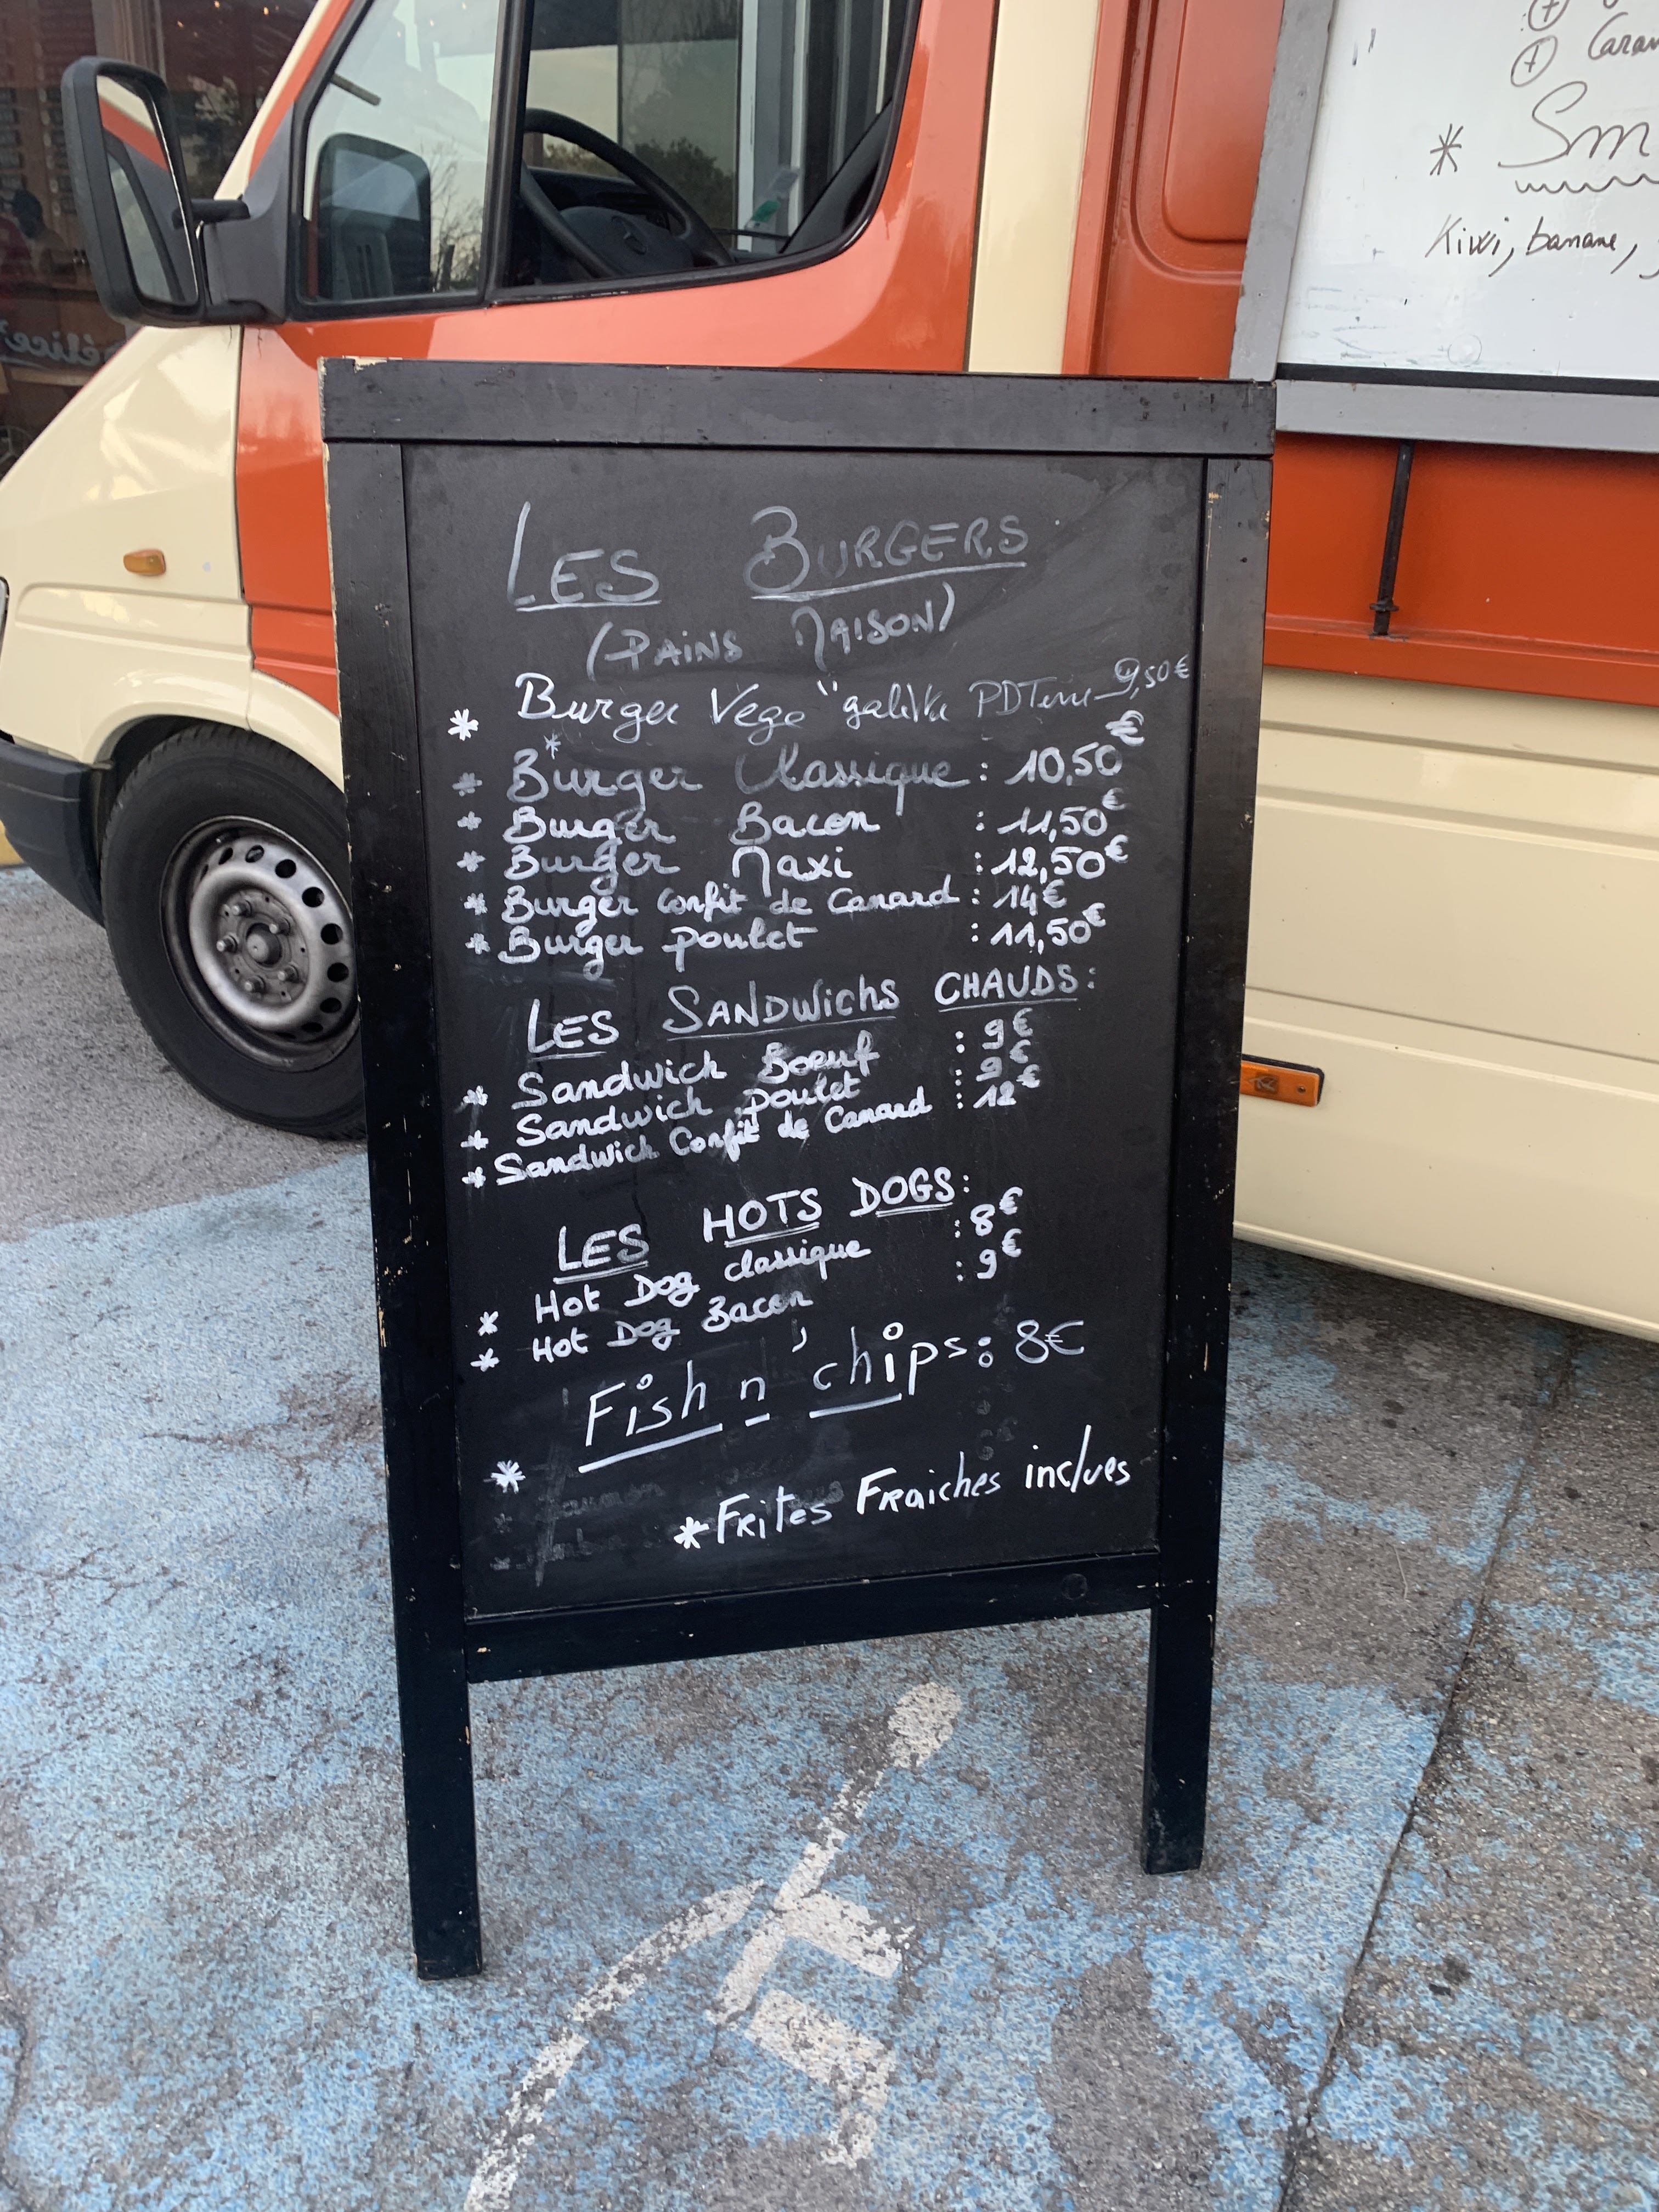 LES BURGERS
(PAINS MAISON)
* Burger Vege "galette PDTerre 9,50€
* Burger Classique : 10,50€
* Burger Bacon : 11,50€
* Burger Maxi : 12,50€
* Burger Confit de Canard : 14€
* Burger poulet : 11,50€
LES SANDWichs CHAUDS:
* Sandwich Boeuf : 9€
* Sandwich poulet : 9€
* Sandwich Confit de Canard : 12€
LES HOTS DOGS:
* Hot Dog classique : 8€
* Hot Dog Bacon : 9€
* Fish n' chips: 8€
*FRites FRaiches inclues
+
+ Caram
* Sm
Kiwi, banane,